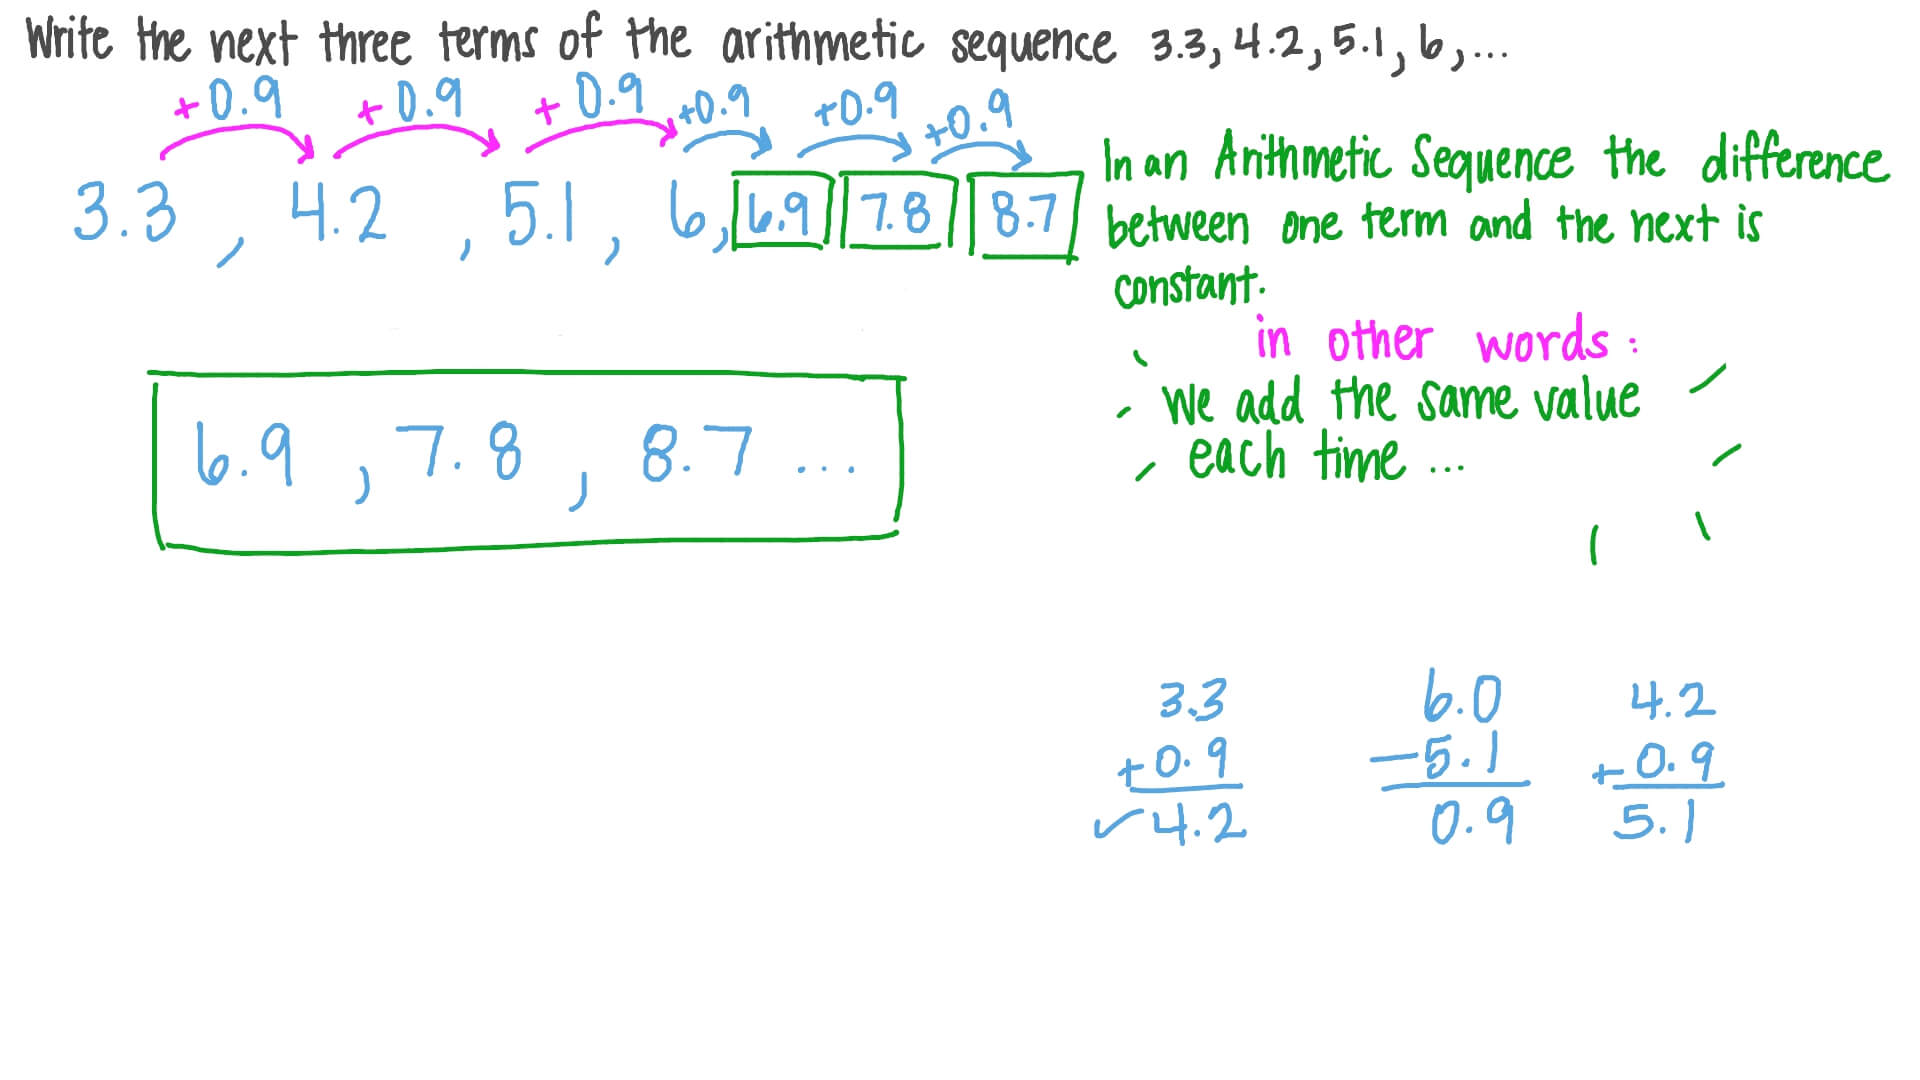 Write the next three terms of the arithmetic sequence 3.3, 4.2, 5.1, 6, ...
+0.9 +0.9 +0.9 +0.9 +0.9 +0.9
3.3, 4.2, 5.1, 6, 6.9 7.8 8.7
In an Arithmetic Sequence the difference
between one term and the next is
constant.
in other words:
we add the same value
each time ...
6.9, 7.8, 8.7 ...
3.3 6.0 4.2
+0.9 -5.1 +0.9
✓4.2 0.9 5.1